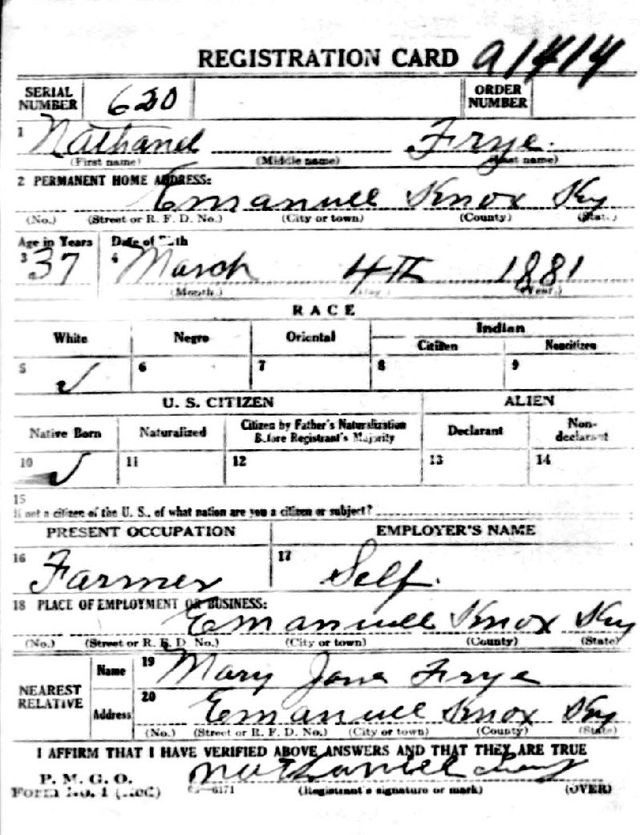 REGISTRATION CARD a1414
SERIAL NUMBER 620 ORDER NUMBER
1 Nathanel Frye.
(First name) (Middle name) (Last name)
2 PERMANENT HOME ADDRESS:
Emanuel Knox Ky
(No.) (Street or R. F. D. No.) (City or town) (County) (State)
Age in Years Date of Birth
3 37 4 March 4TH 1881
(Month.) (Day.) (Year.)
RACE
White Negro Oriental Indian
Citizen Noncitizen
5 ✓ 6 7 8 9
U. S. CITIZEN ALIEN
Native Born Naturalized Citizen by Father's Naturalization Before Registrant's Majority Declarant Non-declarant
10 ✓ 11 12 13 14
15
If not a citizen of the U. S., of what nation are you a citizen or subject?
PRESENT OCCUPATION EMPLOYER'S NAME
16 Farmer 17 Self.
18 PLACE OF EMPLOYMENT OR BUSINESS:
Emanuel Knox Ky
(No.) (Street or R. F. D. No.) (City or town) (County) (State)
NEAREST RELATIVE
Name 19 Mary Jane Frye
Address 20 Emanuel Knox Ky
(No.) (Street or R. F. D. No.) (City or town) (County) (State)
I AFFIRM THAT I HAVE VERIFIED ABOVE ANSWERS AND THAT THEY ARE TRUE
P. M. G. O. Nathaniel
Form No. 1 (Red) 03—6171 (Registrant's signature or mark) (OVER)